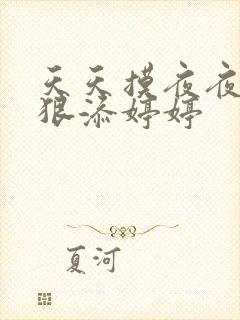 天天摸夜夜
狠添婷婷
夏河